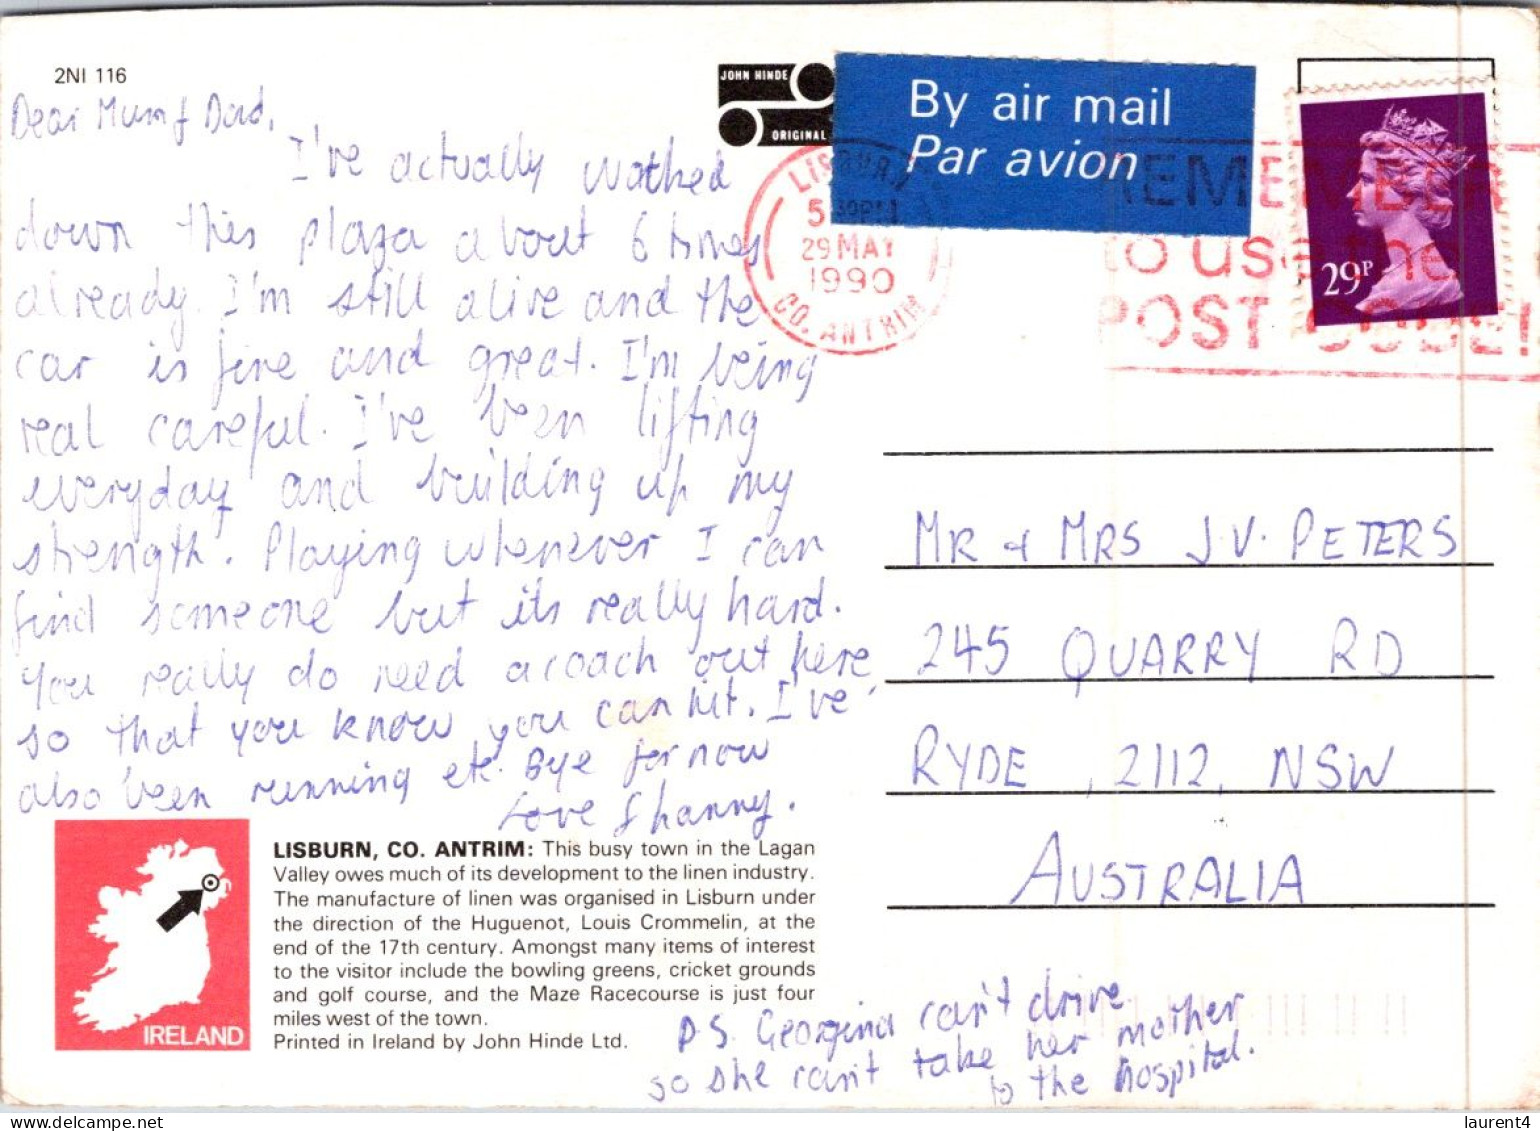 2NI 116
JOHN HINDE
ORIGINAL
By air mail
Par avion
LISBURN
5 30PM
29 MAY
1990
CO. ANTRIM
REMEMBER
to use the
POST CODE
29P
Dear Mum & Dad,
I've actually walked
down this plaza about 6 times
already. I'm still alive and the
car is fine and great. I'm being
real careful. I've been lifting
everyday and building up my
strength. Playing whenever I can
find someone but its really hard.
You really do need a coach out here
so that you know you can hit. I've
also been running etc. Bye for now
Love Shanny.
MR & MRS J.V. PETERS
245 QUARRY RD
RYDE, 2112, NSW
AUSTRALIA
IRELAND
LISBURN, CO. ANTRIM: This busy town in the Lagan
Valley owes much of its development to the linen industry.
The manufacture of linen was organised in Lisburn under
the direction of the Huguenot, Louis Crommelin, at the
end of the 17th century. Amongst many items of interest
to the visitor include the bowling greens, cricket grounds
and golf course, and the Maze Racecourse is just four
miles west of the town.
Printed in Ireland by John Hinde Ltd.
P.S. Georgina can't drive
so she can't take her mother
to the hospital.
delcampe.net
laurent4